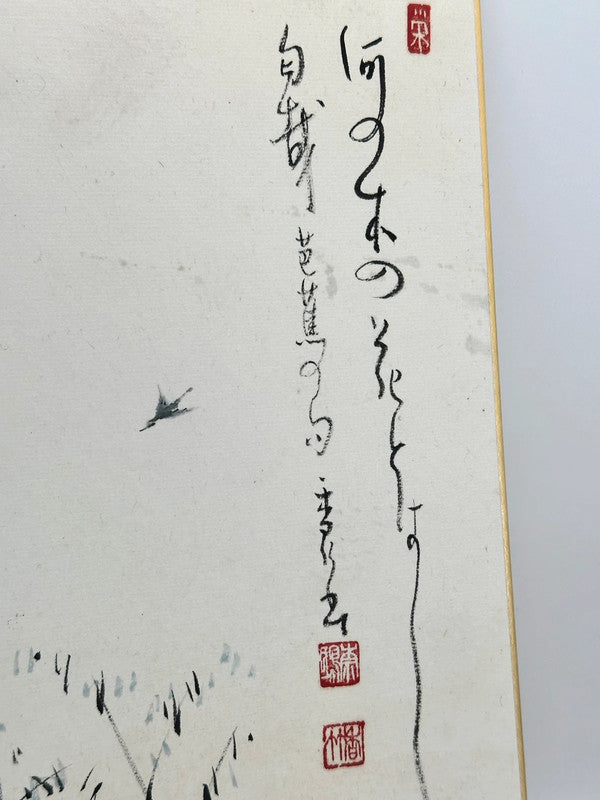 何の木の花とはし
匂哉 芭蕉の句
香竹